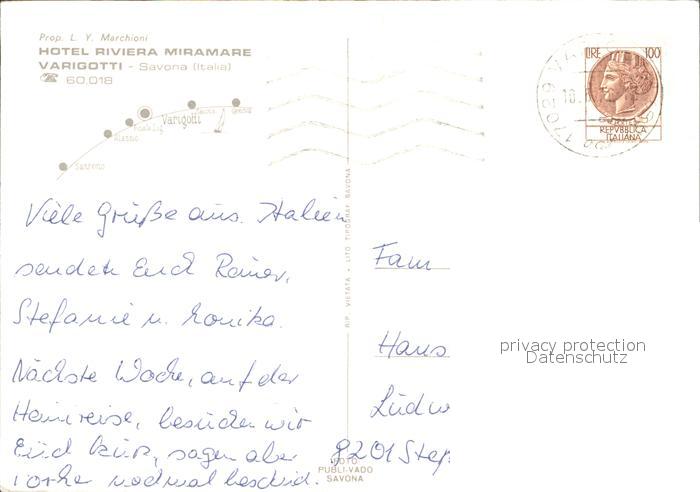 Prop. L. Y. Marchioni
HOTEL RIVIERA MIRAMARE
VARIGOTTI - Savona (Italia)
☎ 60.018
Varigotti
Alassio
Sanremo
LIRE 100
REPVBBLICA
ITALIANA
17029 VA
Viele Grüße aus Italien
senden Euch Rainer,
Stefanie u. Monika.
Nächste Woche, auf der
Heimreise, besuchen wir
Euch kurz, sagen aber
vorher nochmal bescheid.
RIP. VIETATA - LITO TIPOGRAF. SAVONA
FOTO
PUBLI-VADO
SAVONA
Fam
Hans
Ludw
8201 Step
privacy protection
Datenschutz